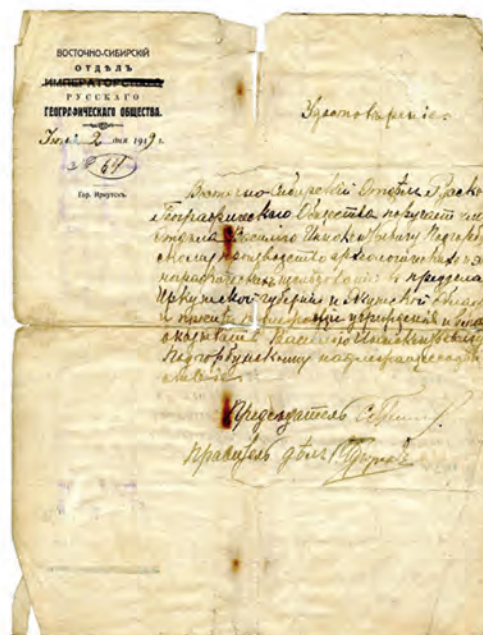 ВОСТОЧНО-СИБИРСКІЙ
ОТДѢЛЪ
ИМПЕРАТОРСКАГО
РУССКАГО
ГЕОГРАФИЧЕСКАГО ОБЩЕСТВА.
2 дня 1919 г.
№ 64
Гор. Иркутскъ.
Удостовѣреніе.
Восточно-Сибирскій Отдѣлъ Русск
Географическаго Общества поручает
отдѣла Василію Иннокентьевичу Подгорбу
скому производство археологических и
в предѣлах
Иркутской губерніи и Якутской област
и просит учрежденія и
оказывать Василію Иннокентьевичу
Подгорбунскому
Предсѣдатель
Правитель дѣлъ